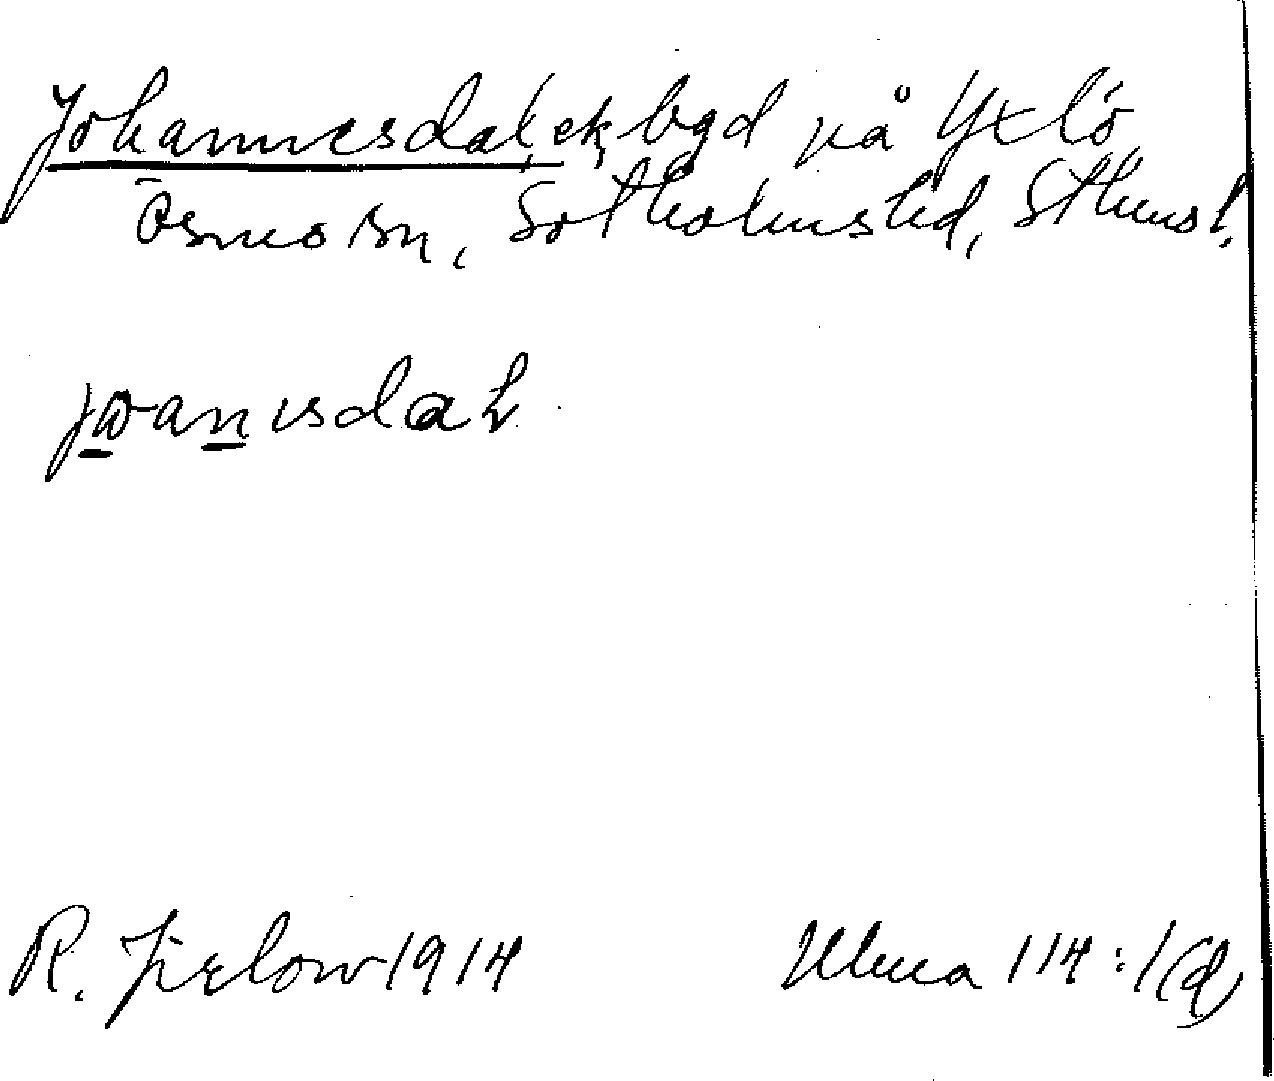 Johannesdal, ek, bgd på Yxlö
Ösmo sn, Sotholms hd, Sthms l.
jωanısdaL
R. Jirlow 1914
Ulma 114:1(d)